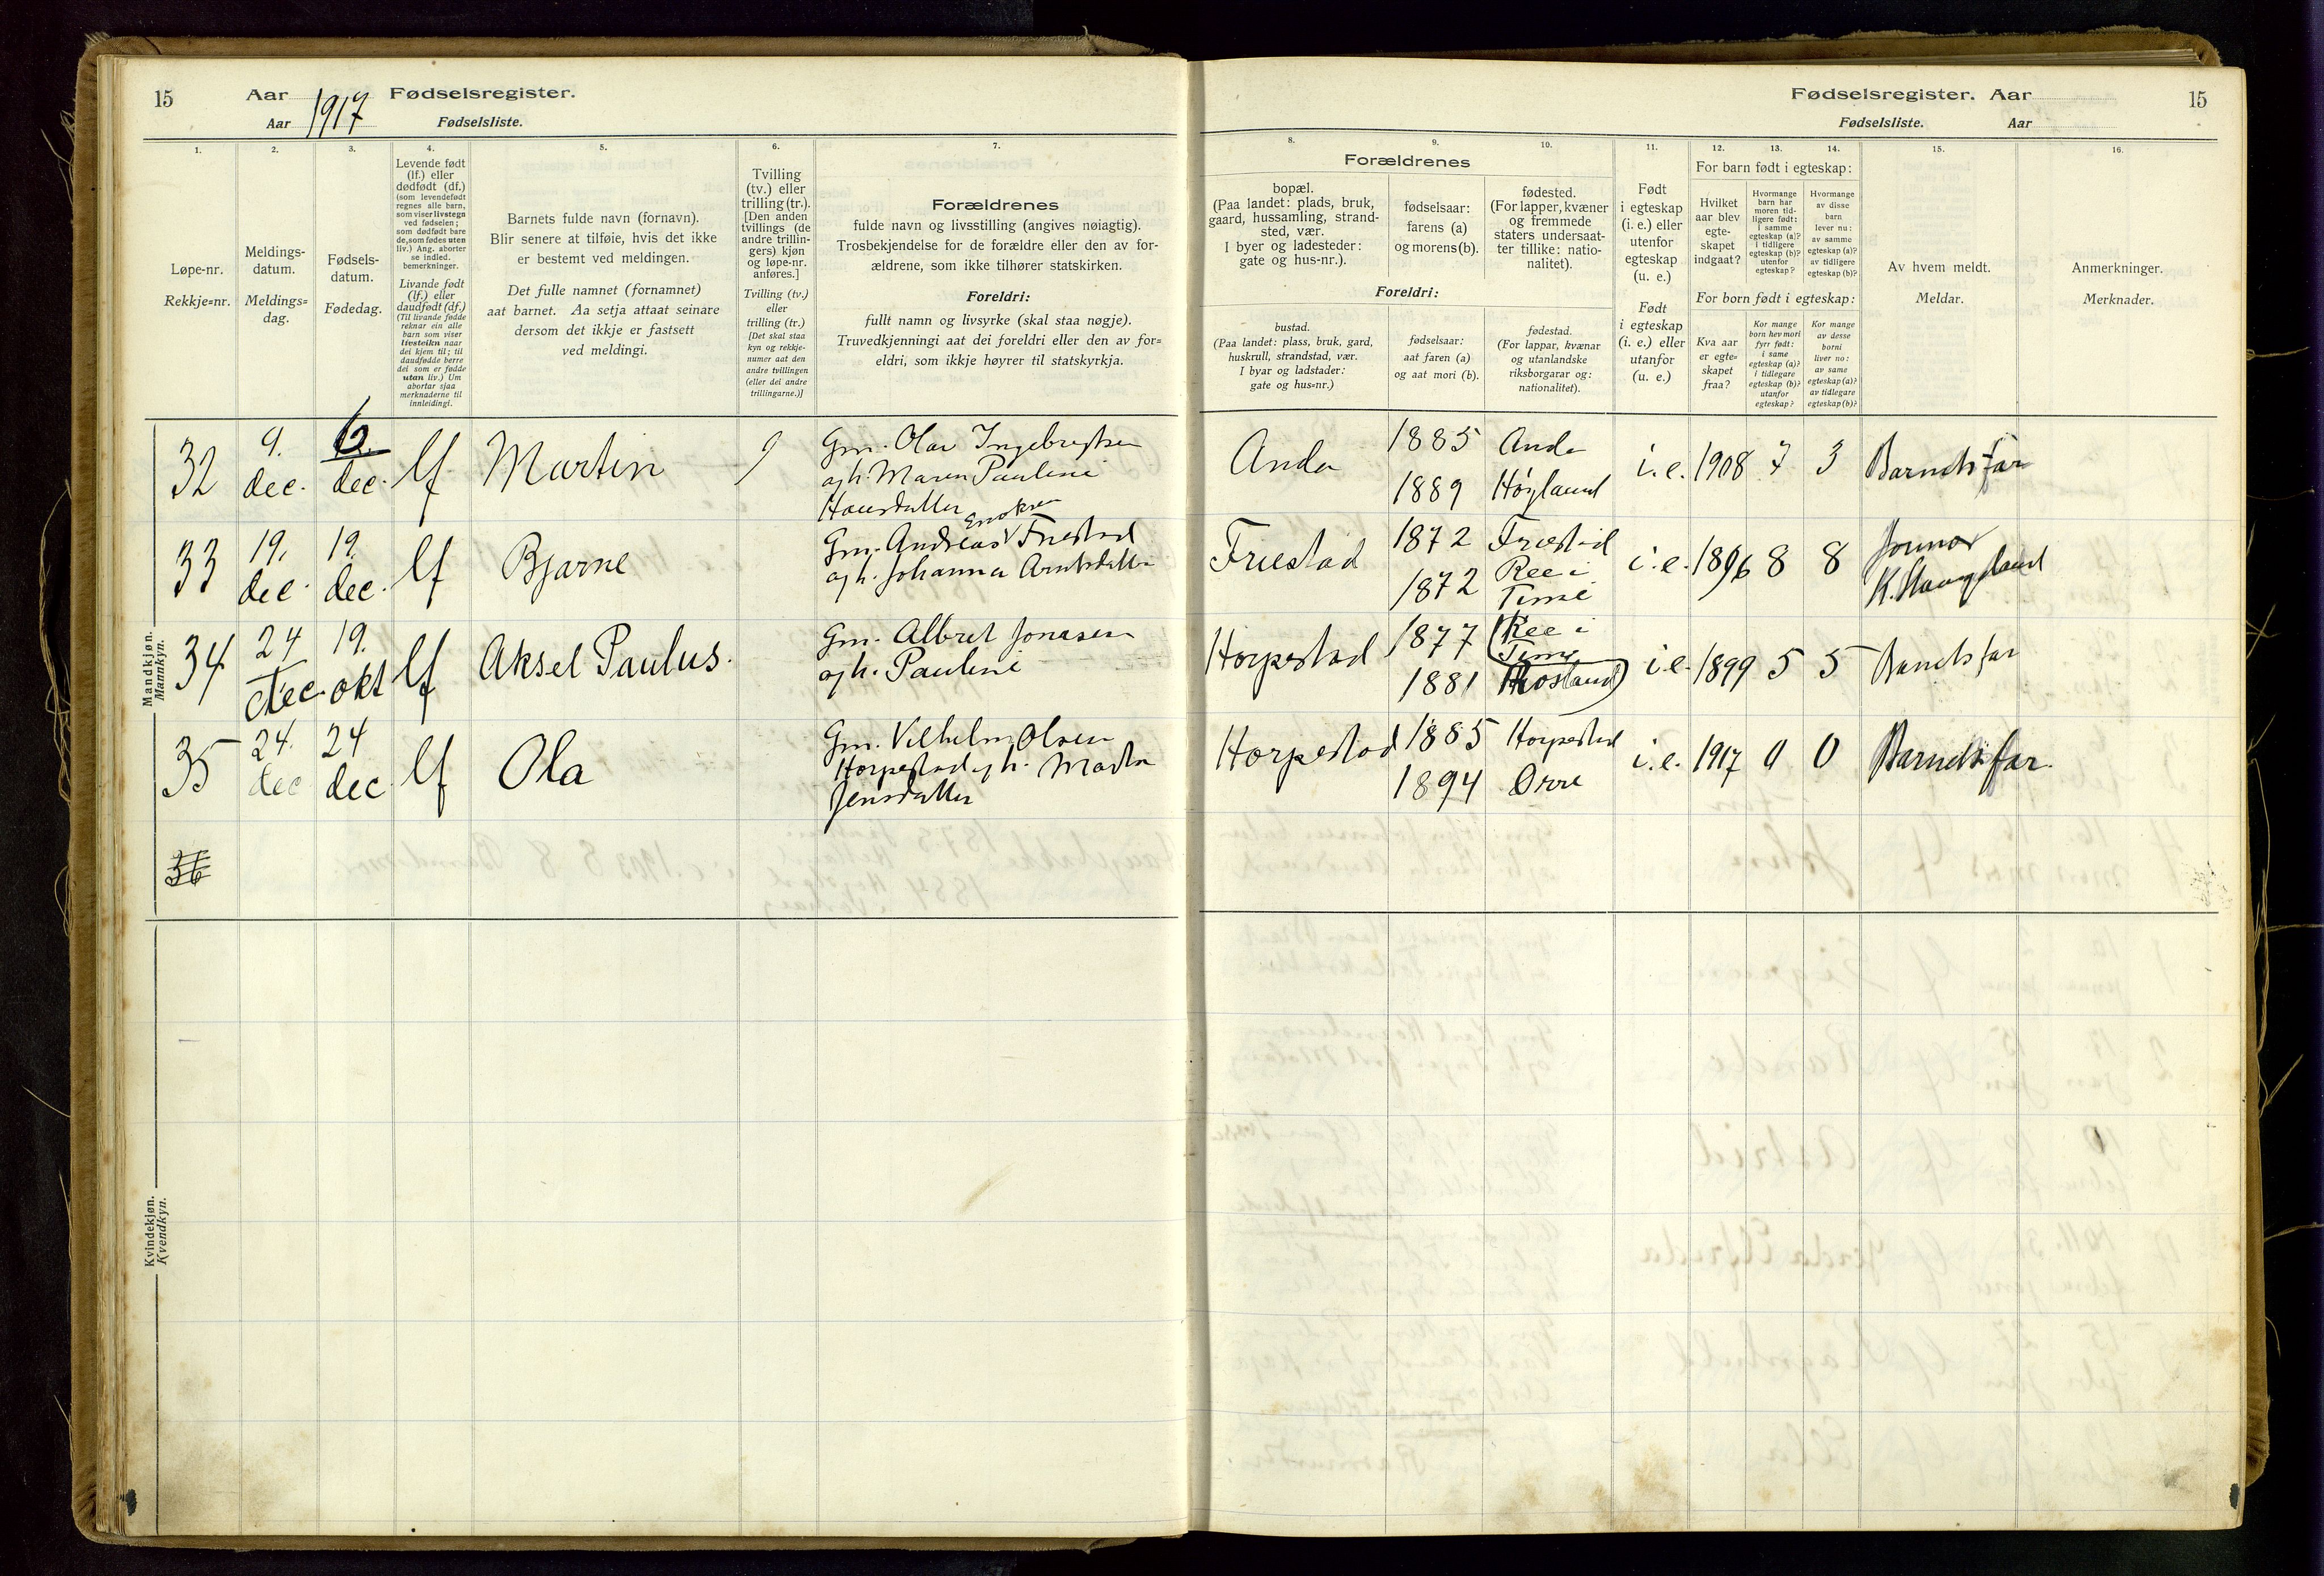 15
Aar 1917 Fødselsregister.
Aar Fødselsliste.
1.
Løpe-nr.
Rekkje=nr.
2.
Meldings-
datum.
Meldings=
dag.
3.
Fødsels-
datum.
Fødedag.
4.
Levende født
(lf.) eller
dødfødt (df.)
(som levendefødt
regnes alle barn,
som viser livstegn
ved fødselen;
som dødfødt bare
de, som fødes uten
liv.) Ang. aborter
se indled.
bemerkninger.
Livande født
(lf.) eller
daudfødt (df.)
(Til livande fødde
reknar ein alle
barn som viser
livsteikn naar
dei kjem til; til
daudfødde berre
dei som er fødde
utan liv.) Um
abortar sjaa
merknaderne til
innleidingi.
5.
Barnets fulde navn (fornavn).
Blir senere at tilføie, hvis det ikke
er bestemt ved meldingen.
Det fulle namnet (fornamnet)
aat barnet. Aa setja attaat seinare
dersom det ikkje er fastsett
ved meldingi.
6.
Tvilling
(tv.) eller
trilling (tr.).
[Den anden
tvillings (de
andre trillin-
gers) kjøn
og løpe-nr.
anføres.]
Tvilling (tv.)
eller
trilling (tr.)
[Det skal staa
kyn og rekkje-
numer aat den
andre tvillingen
(eller dei andre
trillingarne.)]
7.
Forældrenes
fulde navn og livsstilling (angives nøiagtig).
Trosbekjendelse for de forældre eller den av for-
ældrene, som ikke tilhører statskirken.
Foreldri:
fullt namn og livsyrke (skal staa nøgje).
Truvedkjenningi aat dei foreldri eller den av for=
eldri, som ikkje høyrer til statskyrkja.
Mandkjøn.
Mannkyn.
32 9. dec. 6. dec. lf Martin
Gm. Olav Ingebretsen
og h. Maren Pauline
Hansdatter
33 19. dec. 19. dec. lf Bjarne
Gm. Andreas Friestad
og h. Johanna Arntsdatter
34 24 dec. 19. okt lf Aksel Paulus.
Gm. Albret Jonasen
og h. Pauline
35 24. dec 24 dec lf Ola
Gm. Vilhelm Olsen
Horpestad og h. Marta
Jensdatter
36
Kvindekjøn.
Kvendkyn.
Fødselsregister. Aar 15
Fødselsliste. Aar
8. 9. 10.
Forældrenes
bopæl.
(Paa landet: plads, bruk,
gaard, hussamling, strand-
sted, vær.
I byer og ladesteder:
gate og hus-nr.).
fødselsaar:
farens (a)
og morens (b).
fødested.
(For lapper, kvæner
og fremmede
staters undersaat-
ter tillike: natio-
nalitet).
Foreldri:
bustad.
(Paa landet: plass, bruk, gard,
huskrull, strandstad, vær.
I byar og ladstader:
gate og hus=nr.)
fødselsaar:
aat faren (a)
og aat mori (b).
fødestad.
(For lappar, kvænar
og utanlandske
riksborgarar og:
nationalitet).
11.
Født
i egteskap
(i. e.) eller
utenfor
egteskap
(u. e.)
Født
i egteskap
(i. e.) eller
utanfor
(u. e.)
12. 13. 14.
For barn født i egteskap:
Hvilket
aar blev
egte-
skapet
indgaat?
Hvormange
barn har
moren tid-
ligere født:
i samme
egteskap (a)?
i tidligere
egteskap (b)?
utenfor
egteskap?
Hvormange
av disse
barn
lever nu:
av samme
egteskap (a)?
av tidligere
egteskap (b)?
For born født i egteskap:
Kva aar
er egte=
skapet
fraa?
Kor mange
born hev mori
fyrr født:
i same
egteskap (a)?
i tidlegare
egteskap (b)?
utanfor
egteskap?
Kor mange
av desse
borni
liver no:
av same
egteskap (a)?
av tidlegare
egteskap (b)?
15.
Av hvem meldt.
Meldar.
16.
Anmerkninger.
Merknader.
Anda 1885 Anda
1889 Høyland
i. e. 1908 7 3 Barnets far
Friestad 1872 Friestad
1872 Ree i
Time
i. e. 1896 8 8 Jormor
Horpestad 1877 (Ree i
Time
1881 Rosland)
i. e. 1899 5 5 Barnets far
Horpestad 1885 Horpestad
1894 Orre
i. e. 1917 0 0 Barnets far.